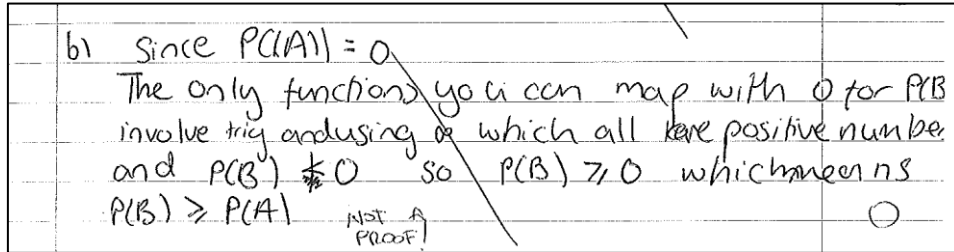 b) Since P((A)) = 0
The only functions you can map with 0 for P(B
involve trig and using which all are positive number
and P(B) ≮ 0 so P(B) ≥ 0 which means
P(B) ≥ P(A)
NOT A
PROOF!
0